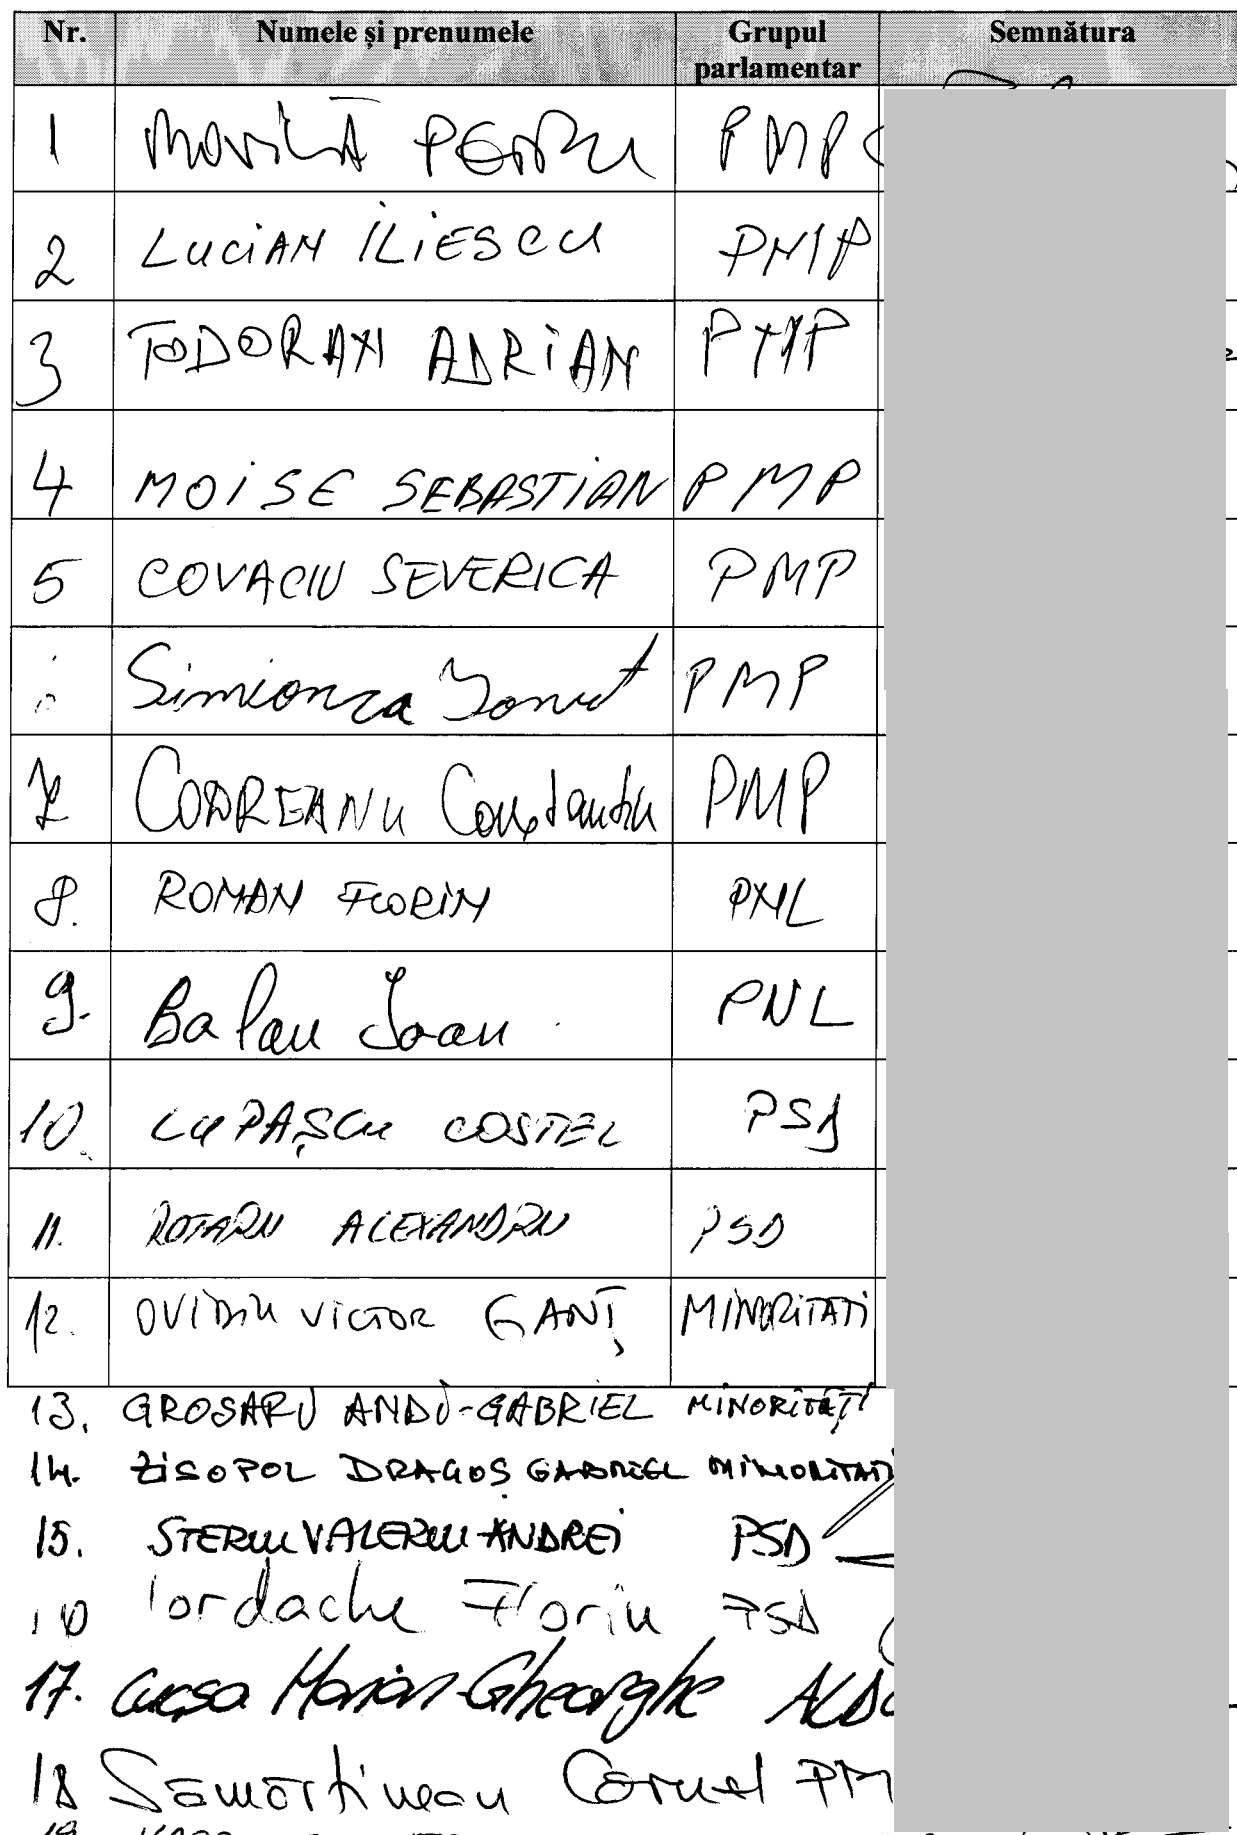 Nr. Numele și prenumele Grupul parlamentar Semnătura
1 Movilă Petru PMP
2 LUCIAN ILIESCU PMP
3 TODORAN ADRIAN PMP
4 MOISE SEBASTIAN PMP
5 COVACIU SEVERICA PMP
Simionca Ionut PMP
7 CODREANU Constantin PMP
8. ROMAN FLORIN PNL
9. Balan Ioan PNL
10. LUPAȘCU COSTEL PSD
11. ROTARU ALEXANDRU PSD
12. OVIDIU VICTOR GANȚ MINORITATI
13. GROSARU ANDI-GABRIEL MINORITĂȚI
14. ZISOPOL DRAGOȘ GABRIEL MINORITATI
15. STERIU VALERIU-ANDREI PSD
Iordache Florin PSD
17. Cucșa Marian-Gheorghe ALD
18 Samartinean Cornel PM
19